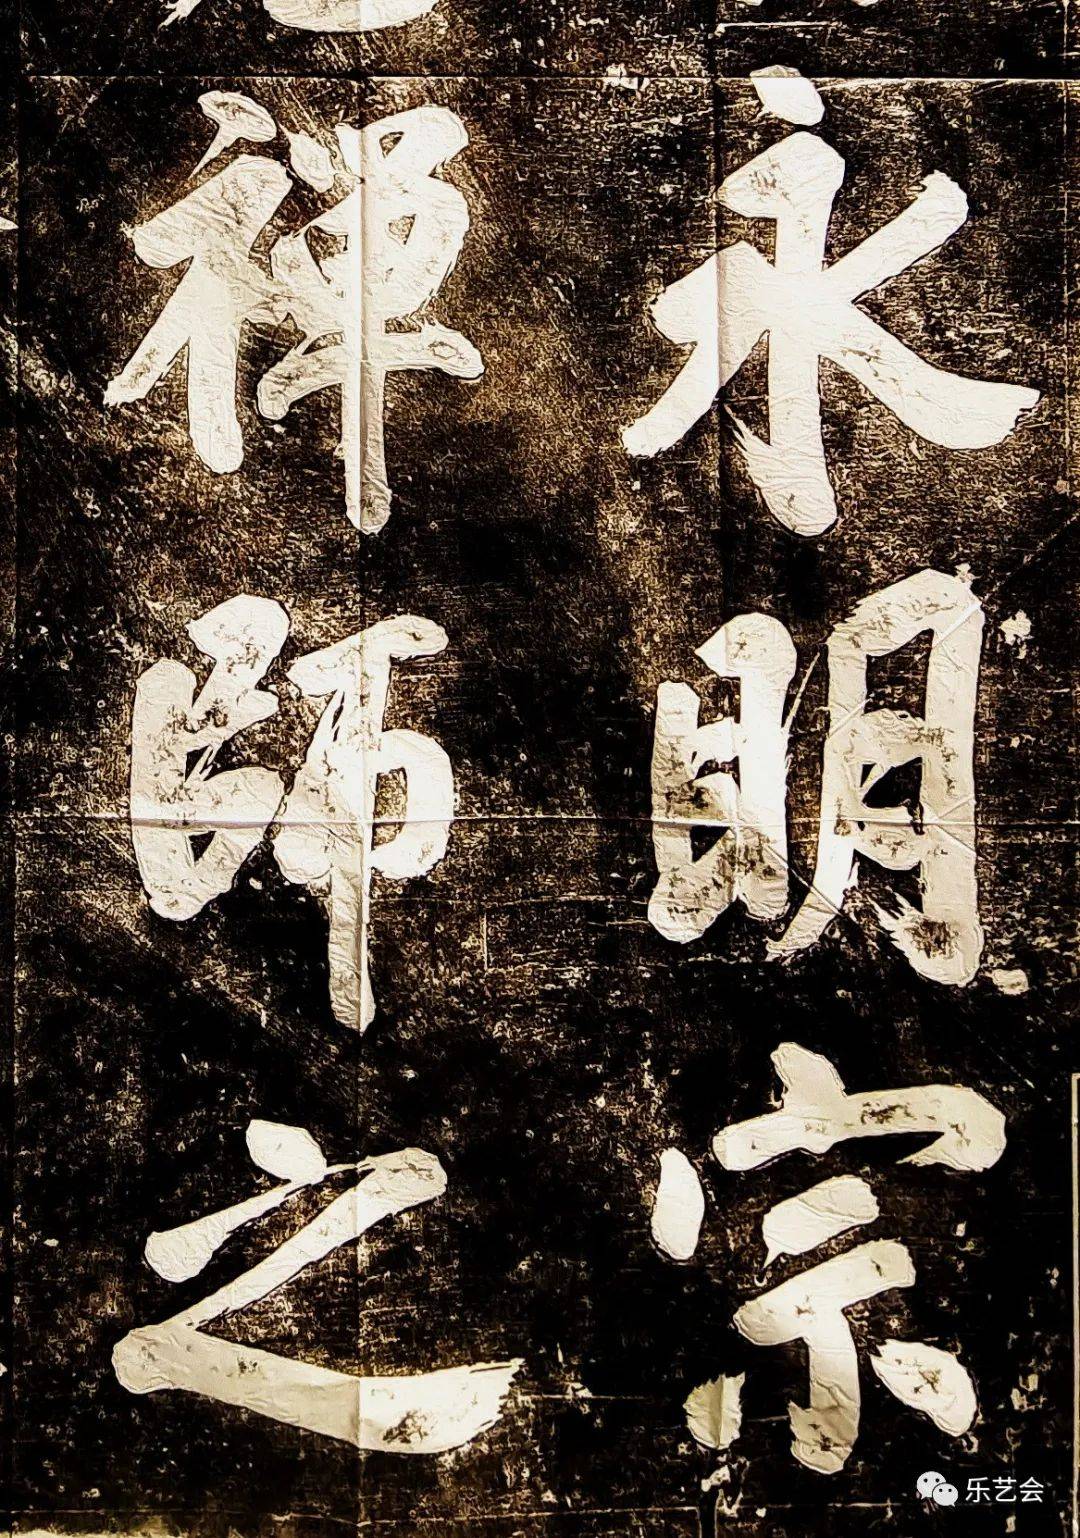 永明宗
禅師之
乐艺会